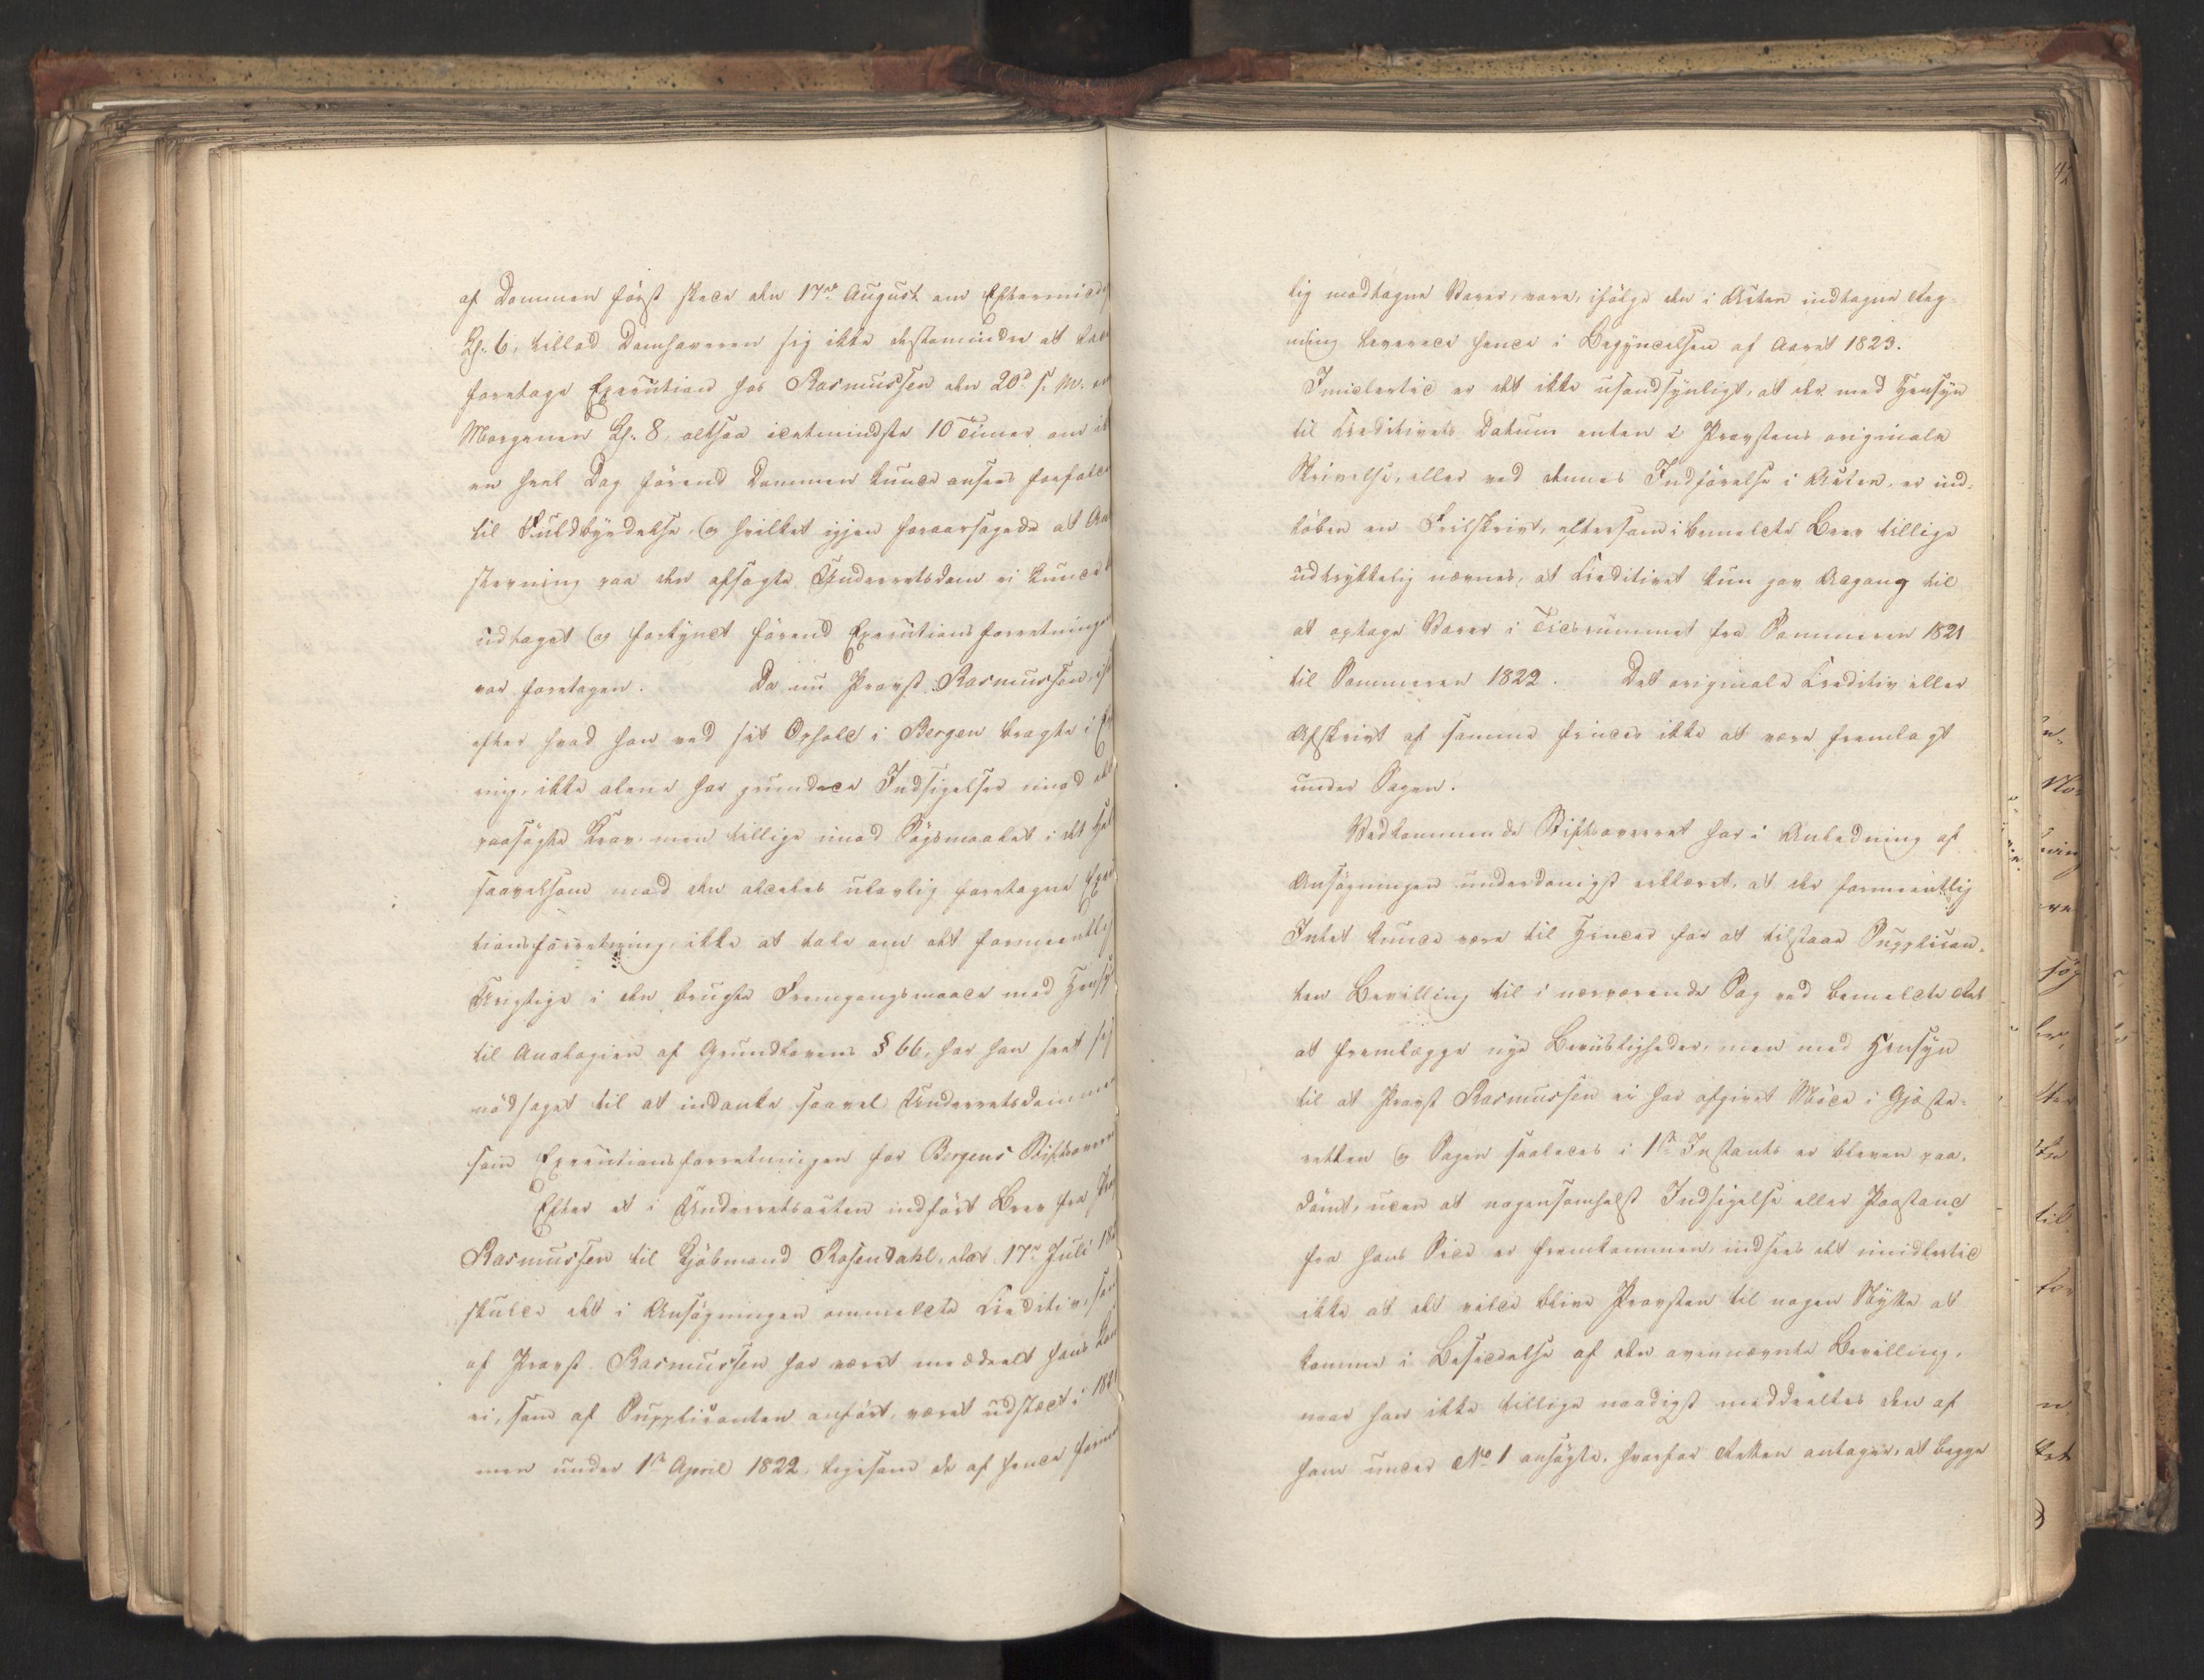 af Dommen först skede den 17de August om Eftermidd
Kl. 6, tillod Domhaveren sig ikke destomindre at lade
foretage Execution hos Rasmussen den 20d s. M. om
Morgenen Kl. 8, altsaa idetmindste 10 Timer om ik
en heel Dag förend Dommen kunde ansees forfalde
til Fuldbyrdelse, og hvilket igjen foraarsagede at
stevning paa den afsagte Underretsdom ei kunde
udtaget og forkyndt förend Executionsforretningen
var foretagen. Da nu Provst Rasmussen,
efter hvad han ved sit Ophold i Bergen bragte i
ring, ikke alene har grundede Indsigelser imod det
paasögte Krav, men tillige imod Sögsmaalet i det
saavelsom mod den aldeles ulovlig foretagne Exe
tionsforretning, ikke at tale om det formeentlig
Urigtige i den brugte Fremgangsmaade med Hensyn
til Analogien af Grundlovens § 66, har han seet sig
nödsaget til at indanke saavel Underretsdommen
som Executionsforretningen for Bergens Stiftsoverret
Efter et i Underretsacten indfört Brev fra
Rasmussen til Kjöbmand Rosendahl, dat. 17de Juli 182
skulde det i Ansögningen ommeldte Creditiv, som
af Provst Rasmussen har været meddeelt hans
ei, som af Supplicanten anfört, været udstædt i 1821
men under 1ste April 1822, ligesom de af hende
lig modtagne Varer, vare, ifölge den i Acten indtagne Reg-
ning leverede hende i Begyndelsen af Aaret 1823.
Imidlertid er det ikke usandsynligt, at der med Hensyn
til Creditivets Datum enten i Provstens originale
Skrivelse, eller ved dennes Indförelse i Acten, er ind-
löben en Feilskrivt, eftersom i bemeldte Brev tillige
udtrykkelig nævnes, at Creditivet kun gav Adgang til
at optage Varer i Tidsrummet fra Sommeren 1821
til Sommeren 1822. Det originale Creditiv eller
Afskrivt af samme findes ikke at være fremlagt
under Sagen.
Vedkommende Stiftsoverret har i Anledning af
Ansögningen underdanigst erklæret, at der formeentlig
Intet kunde være til Hinder for at tilstaae Supplican-
ten Bevilling til i nærværende Sag ved bemeldte Ret
at fremlægge nye Beviisligheder, men med Hensyn
til at Provst Rasmussen ei har afgivet Möde i Gjæste-
retten og Sagen saaledes i 1ste Instants er bleven paa-
dömt, uden at nogensomhelst Indsigelse eller Paastand
fra hans Side er fremkommen, indsees det imidlertid
ikke at det vilde blive Provsten til nogen Nytte at
komme i Besiddelse af den ovennævnte Bevilling,
naar han ikke tillige naadigst meddeeltes den af
ham under No 1 ansögte, hvorfor Retten antager, at begge